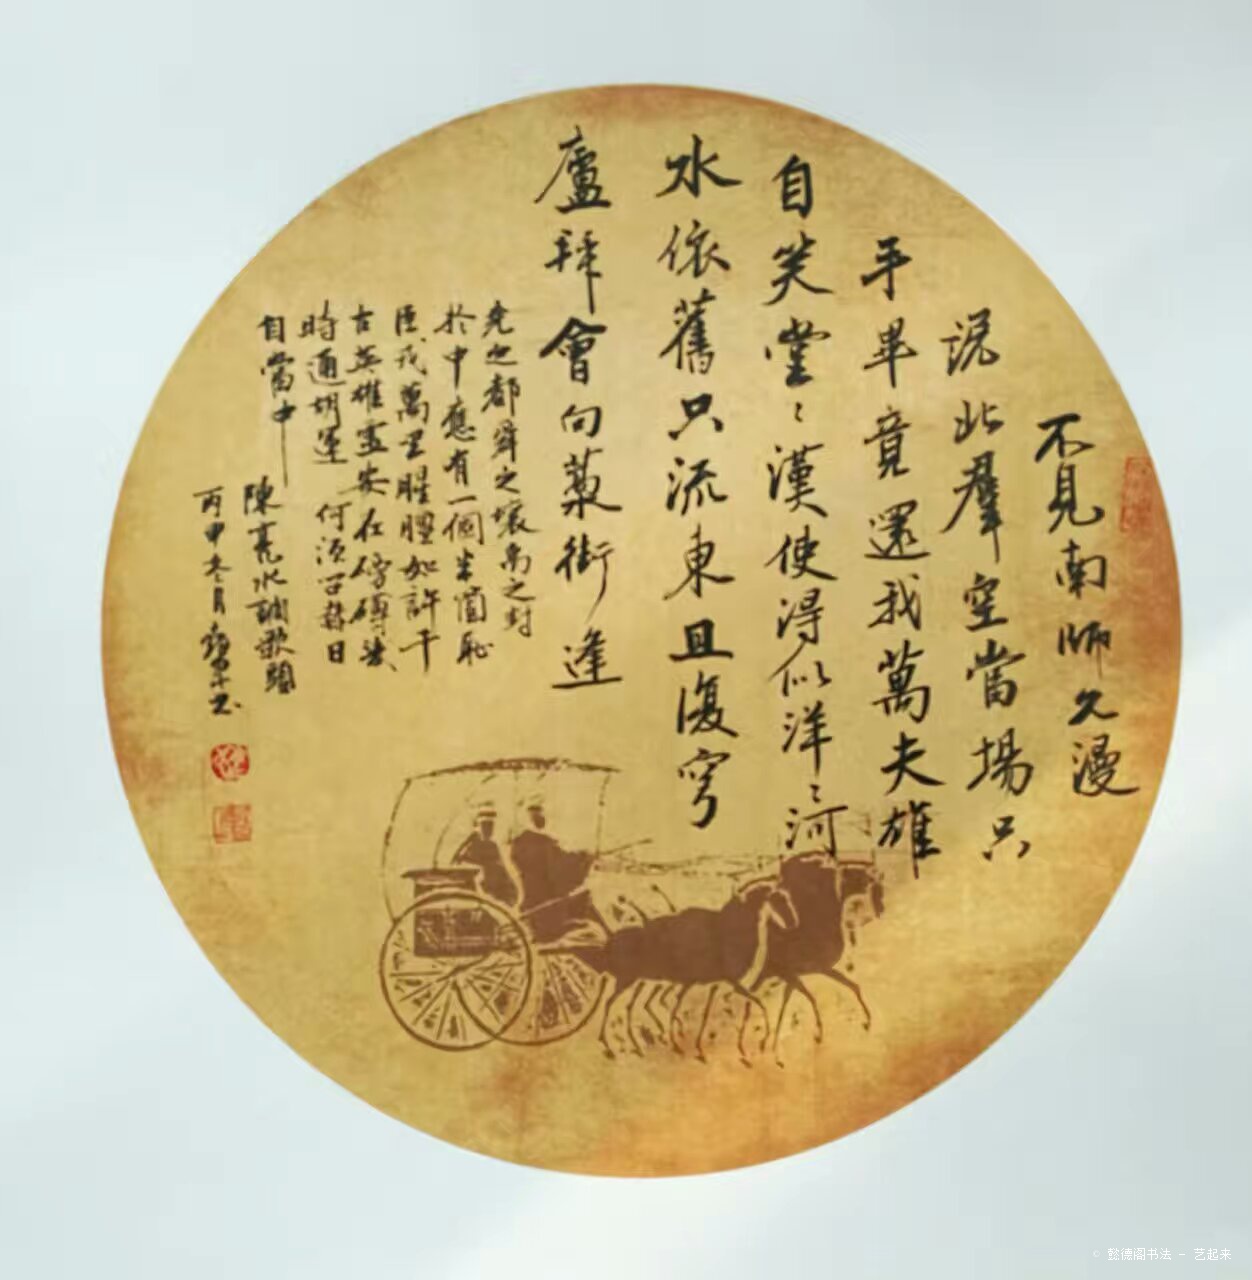 不見南師久漫
説北羣空當場只
手畢竟還我萬夫雄
自笑堂〻漢使得似洋〻河
水依舊只流東且復穹
廬拜會向藁街逢
堯之都舜之壤禹之封
於中應有一個半箇恥
臣戎萬里腥膻如許千
古英雄靈安在磅礴幾
時通胡運何須問赫日
自當中
陳亮水調歌頭
丙申冬月書
© 懿德阁书法 - 艺起来